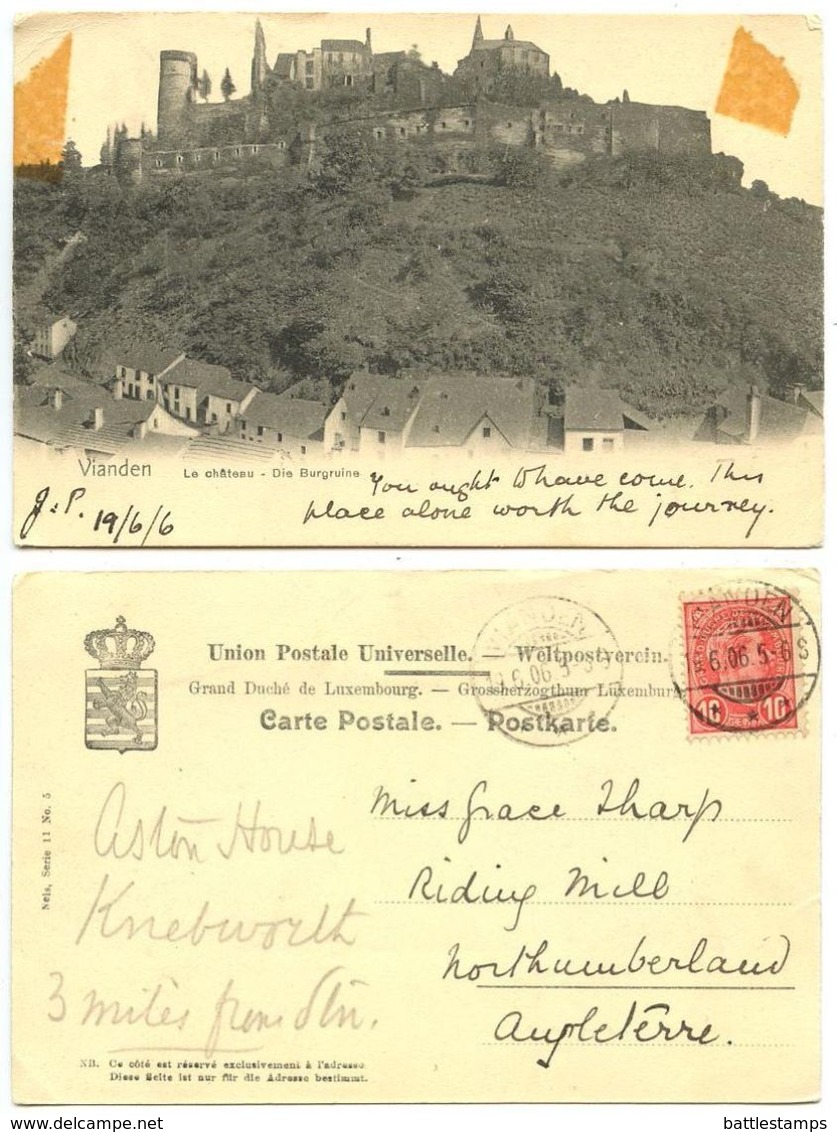 Vianden
Le château - Die Burgruine
You ought to have come. This
place alone worth the journey.
J.P. 19/6/6
Union Postale Universelle. — Weltpostverein.
Grand Duché de Luxembourg. — Grossherzogthum Luxemburg
Carte Postale. — Postkarte.
VIANDEN
9.6.06.5-6S
VIANDEN
6.06.5-6S
10 10
Nels, Serie 11 No. 5
Miss Grace Tharp
Riding Mill
Northumberland
Angleterre.
Aston House
Knebworth
3 miles from Stn.
NB. Ce côté est réservé exclusivement à l'adresse
Diese Seite ist nur für die Adresse bestimmt.
delcampe.net
battlestamps